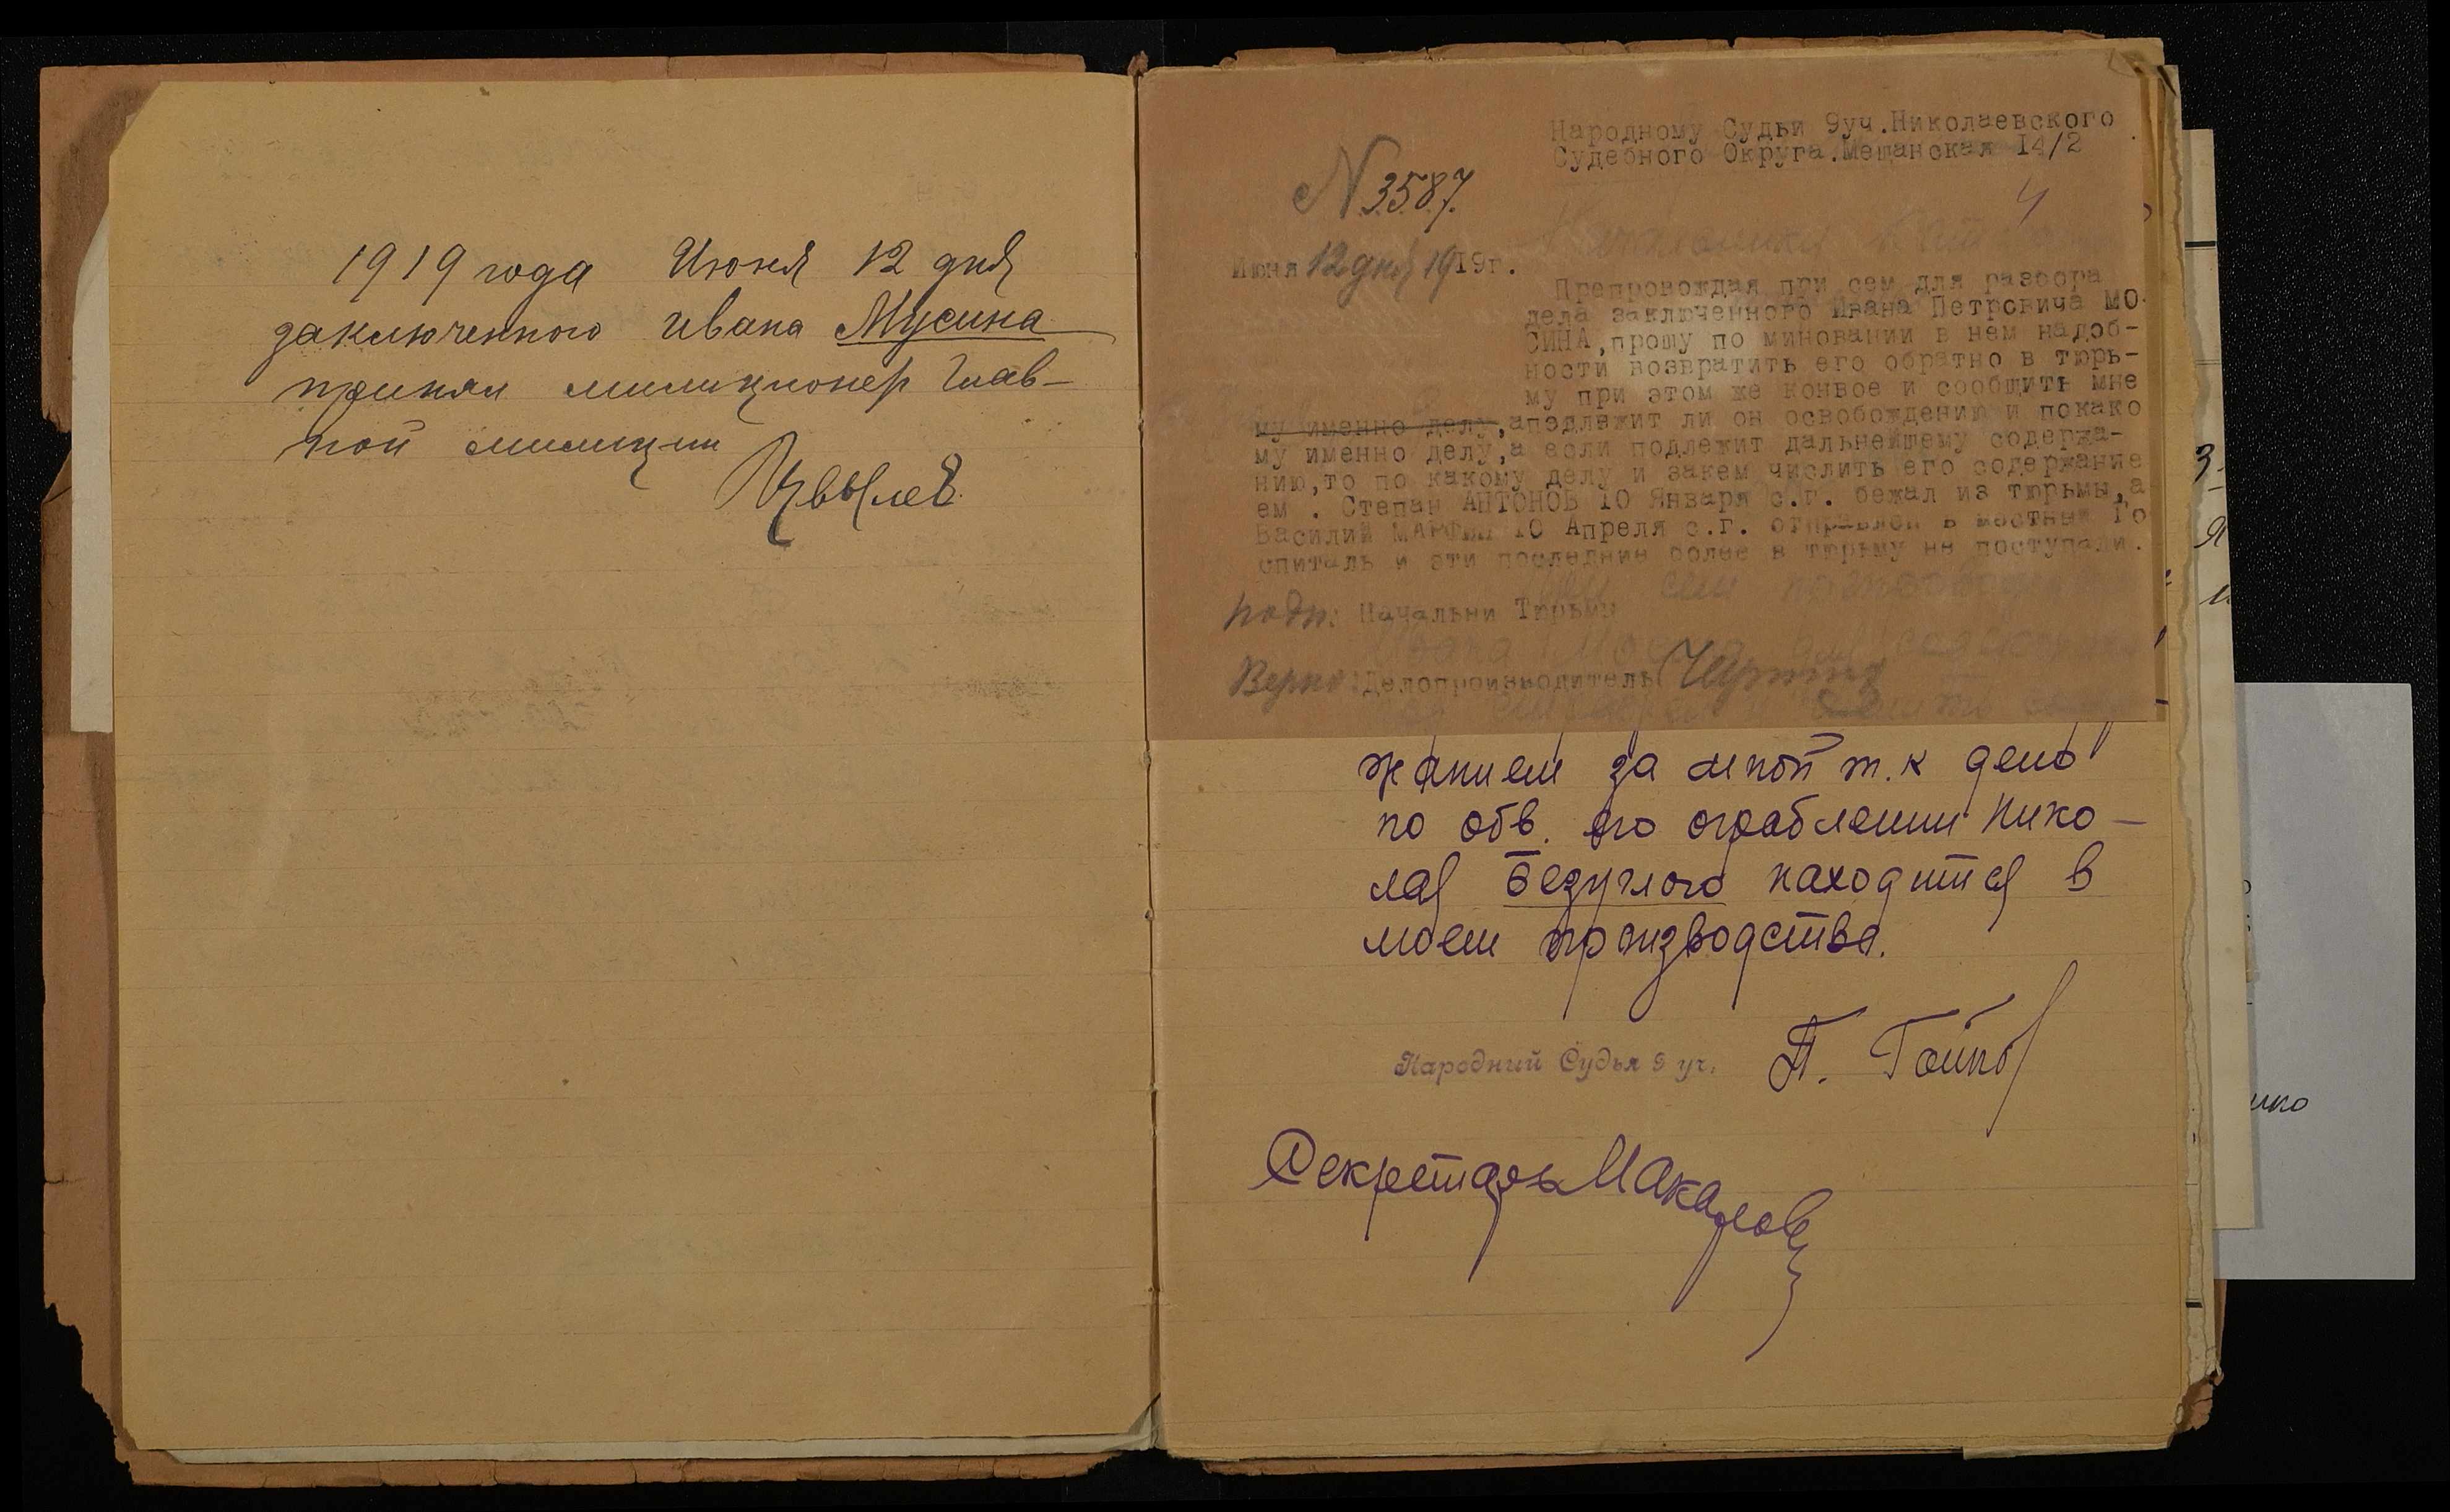 1919 года Июня 12 дня
заключенного Ивана Мусина
принял милиционер Глав-
ной милиции
Цвылев
Народному Судьи 9уч.Николаевского
Судебного Округа.Мещанская I4/2
№ 3587.
4
Июня 12 дня 1919г.
Препровождая при сем для разбора
дела заключенного Ивана Петровича МО-
СИНА,прошу по миновании в нем надоб-
ности возвратить его обратно в тюрь-
му при этом же конвое и сообщить мне
му именно делу,аподлежит ли он освобождению и покако
му именно делу,а если подлежит дальнейшему содержа-
нию,то по какому делу и закем числить его содержание
ем . Степан АНТОНОВ IO Января с.г. бежал из тюрьмы,а
Василий IO Апреля с.г. отправлен в местный Го
спиталь и эти последние более в тюрьму не поступали.
подп: Начальни Тюрьмы
Верно: Делопроизводитель
жанием за мной т.к дело
по обв. его ограблении Нико-
лая Безуглого находится в
моем производстве.
Народный Судья 9 уч.
Секретарь Макаров
3-
я
и
ико